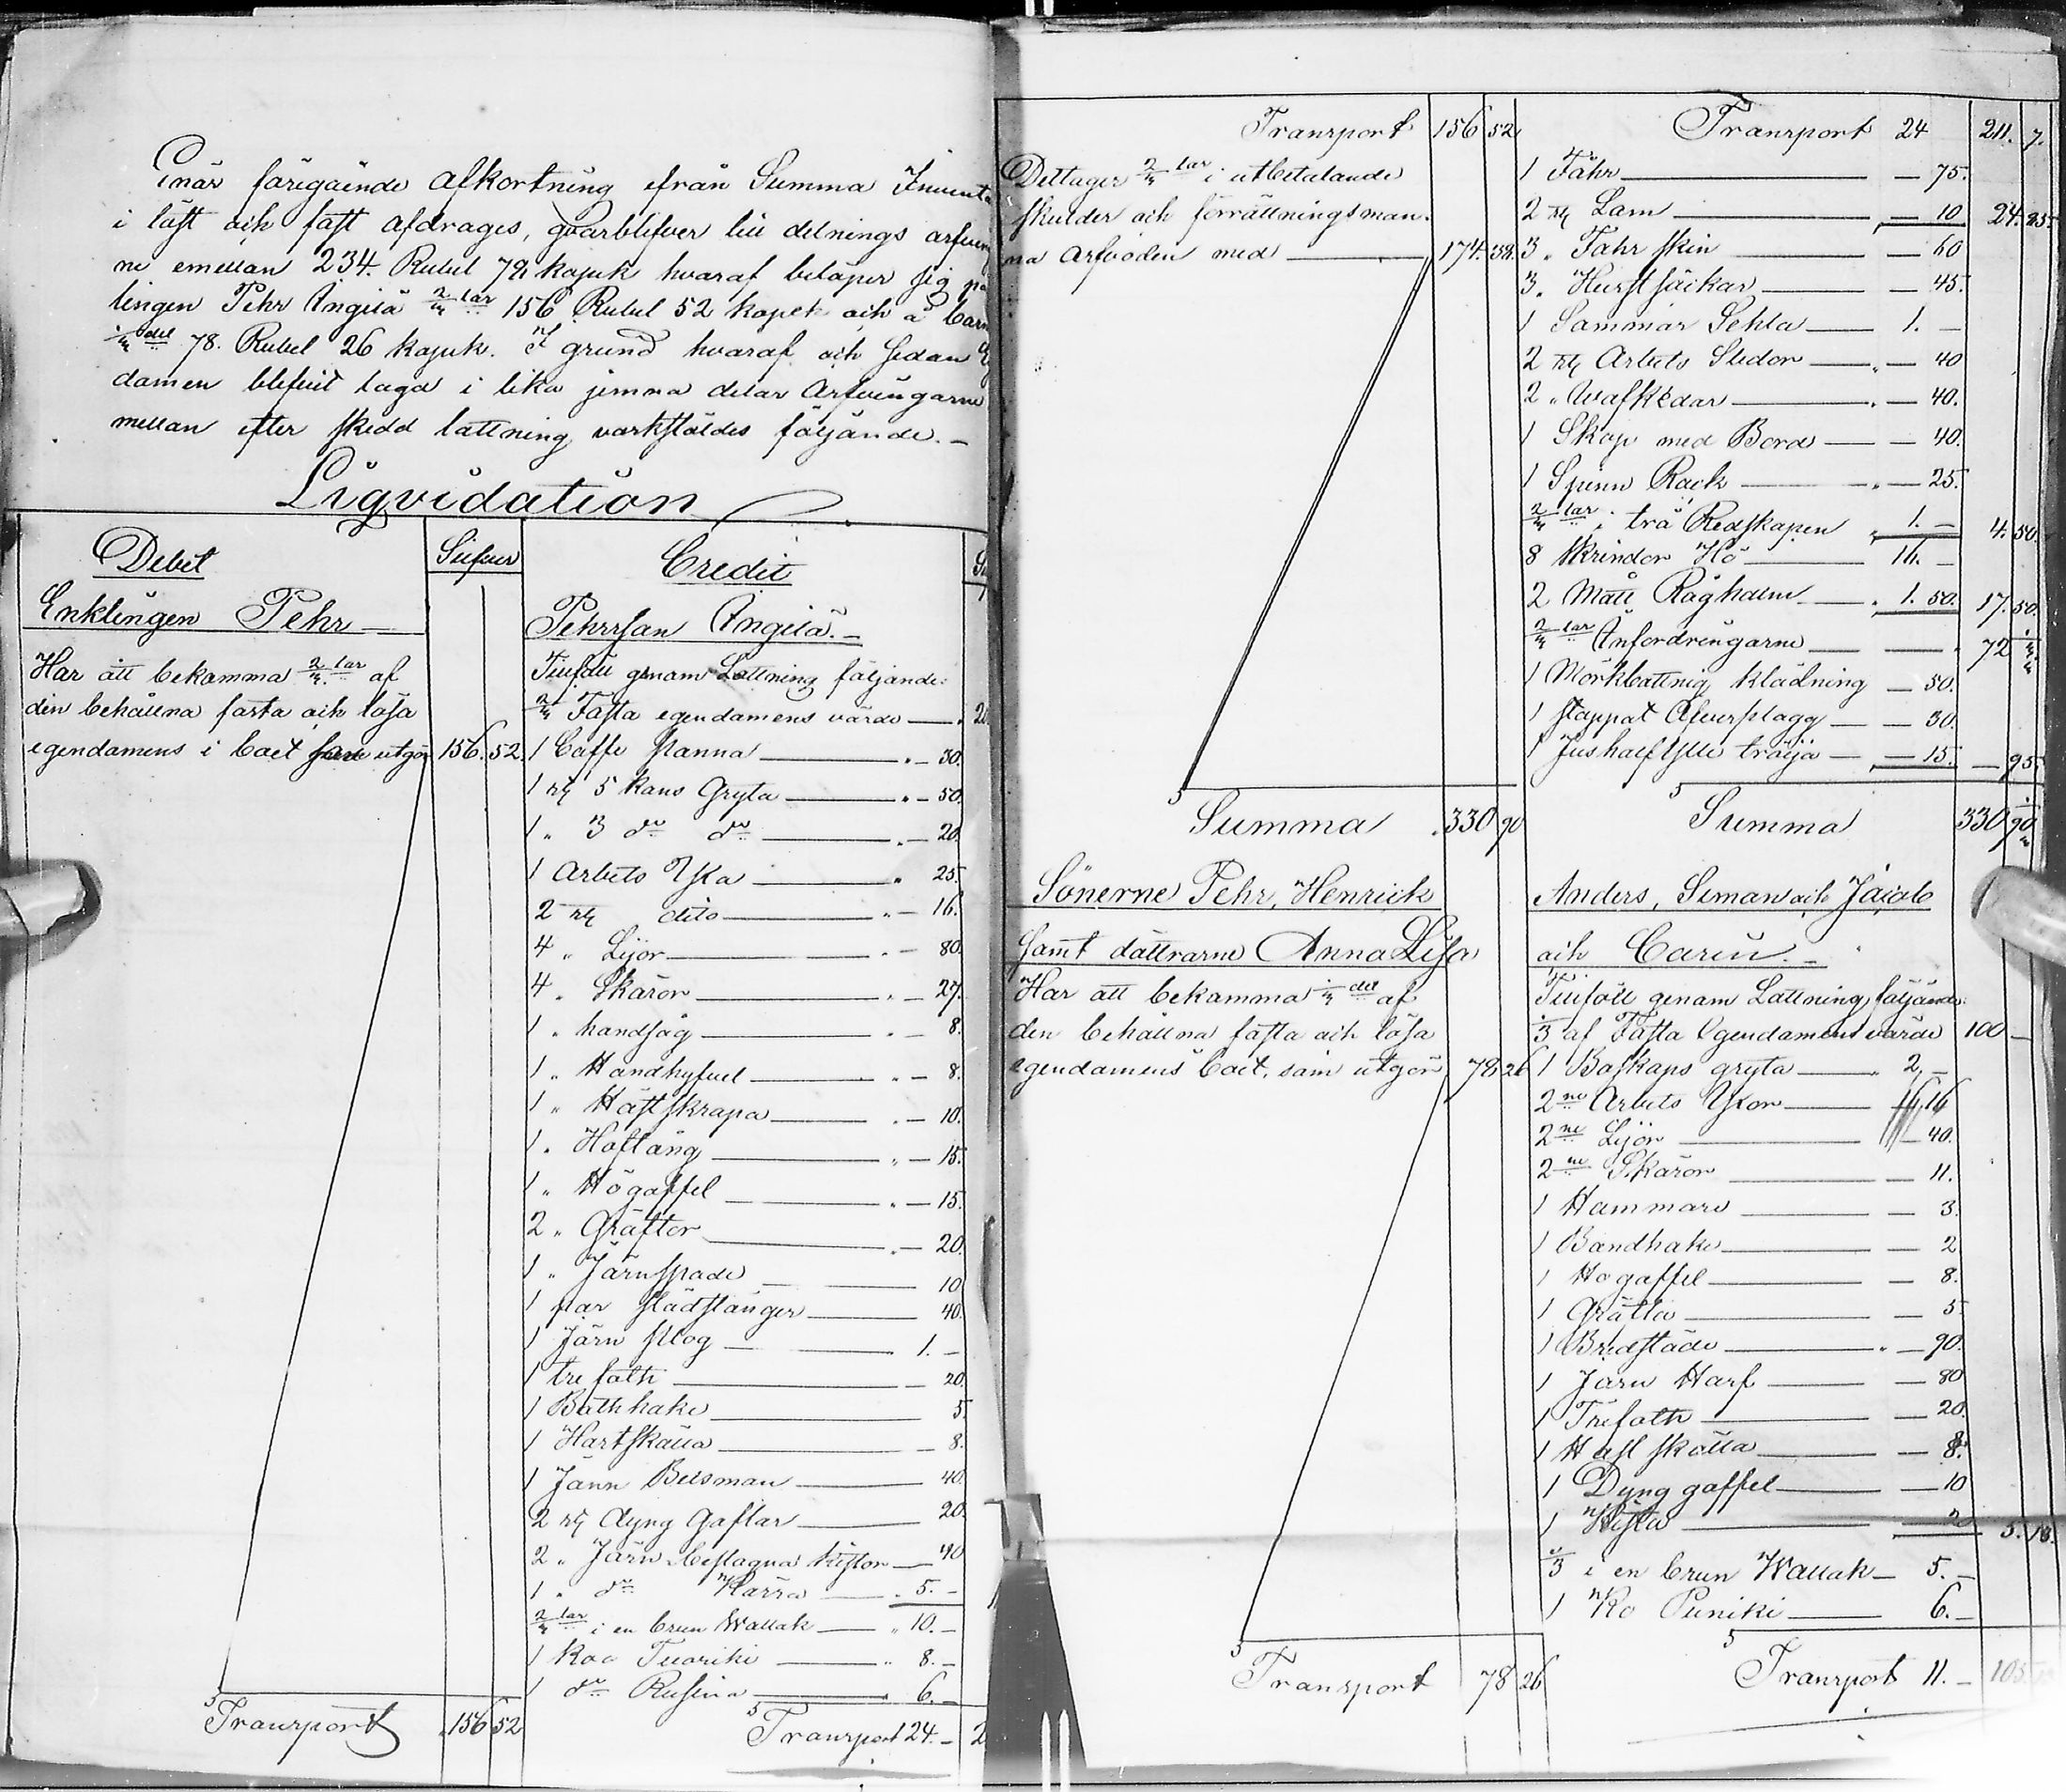 Enär föregående afkortning ifrån Summa Invent
i löst och fast afdrages, qvarblifver till delnings arfvin
ne emellan 234. Rubel 78 kopek hvaraf belöper sig på
lingen Pehr Angilä 2/3 lar 156 Rubel 52 kopek och å barn
1/3 del 78. Rubel 26 kopek. I grund hvaraf och sedan
damen blifvit lagd i lika jemna delar Arfvingarne
mellan efter skedd lottning verkstäldes följande. –
Liqvidation
Debet
Silfver
Credit
Enklingen Pehr
Pehrsson Angilä. –
Har att bekomma 2/3 lar af
den behållna fasta och lösa
egendomens i boet som utgör 156. 52.
Tillföll genom Lottning följande:
2/3 Fasta egendomens värde
1 Caffe panna – 30.
1 st 5 kans Gryta – 50.
1 " 3 do do – 20.
1 Arbets Yxa 25.
2 st dito – 16.
4 " Lijor – 80.
4 " Skäror – 27.
1 " handsåg – 8.
1 " Handhyfvel – 8.
1 " Hästskrapa – 10.
1 " Hoftång – 15.
1 " Högaffel – 15.
2 " Gräftor – 20.
1 " Järnspade 10
1 par städstänger 40.
1 Järn plog 1. –
1 trefoth – 20.
1 Båthhake 5.
1 Hartskälla – 8.
1 Järn Betsman 40
2 st dyng Gaflar 20.
2 " Järn beslagna kistor 40
1 " do Kärra 5. –
2/3 lar i en brun Wallak 10. –
1 Koo Tuoriki 8. –
1 do Rusina 6. –
Transport 156 52
Transport 24. –
Transport 156 52
Deltager 2/3 lar i utbetalande
skulder och förrättningsman-
na arfvoden med 174. 38.
Summa 330 90
Transport 24 211. 7.
1 Fåhr – 75.
2 st Lam – 10 24. 85.
3 " Fåhr skin – 60
3 " Hurstsäckar – 45.
1 Sommar Sehla 1. –
2 st Arbets Sledor – 40
2 " Wafkedar – 40.
1 Skåp med Bord – 40.
1 Spinn Rack – 25.
2/3 lar i trä Redskapen 1. – 4. 50.
8 Skrindor Hö 16. –
2 Mått Råghalm 1. 50. 17. 50.
2/3 lar Anfordringarne 72
1 Mörkbottnig klädning – 50.
1 stoppat Öfverplagg – 30.
1 Ljus half Ylle tröija – 15. – 95.
Summa 330 90
Sönerne Pehr, Henrick
Anders, Simon och Jacob
samt döttrarne Anna Lisa
och Carin. –
Har att bekomma 1/3 del af
den behållna fasta och lösa
egendomens boet, som utgör 78 26
Tillföll genom Lottning följande:
1/3 af Fasta Egendomens värde 100 –
1 Boskaps gryta 2, –
2ne Arbets Yxor 16
2ne Lijor – 40.
2ne Skäror – 11.
1 Hammare – 3.
1 Bandhake – 2
1 Högaffel – 8.
1 Gräfta – 5
1 Bredstäde – 90.
1 Järn Harf – 80
1 Trefoth – 20.
1 Häst skälla – 8.
1 Dyng gaffel – 10
1 Kista 5. 18.
1/3 i en brun Wallak – 5. –
1 Ko Puniki 6. –
Transport 78 26
Transport 11. – 105